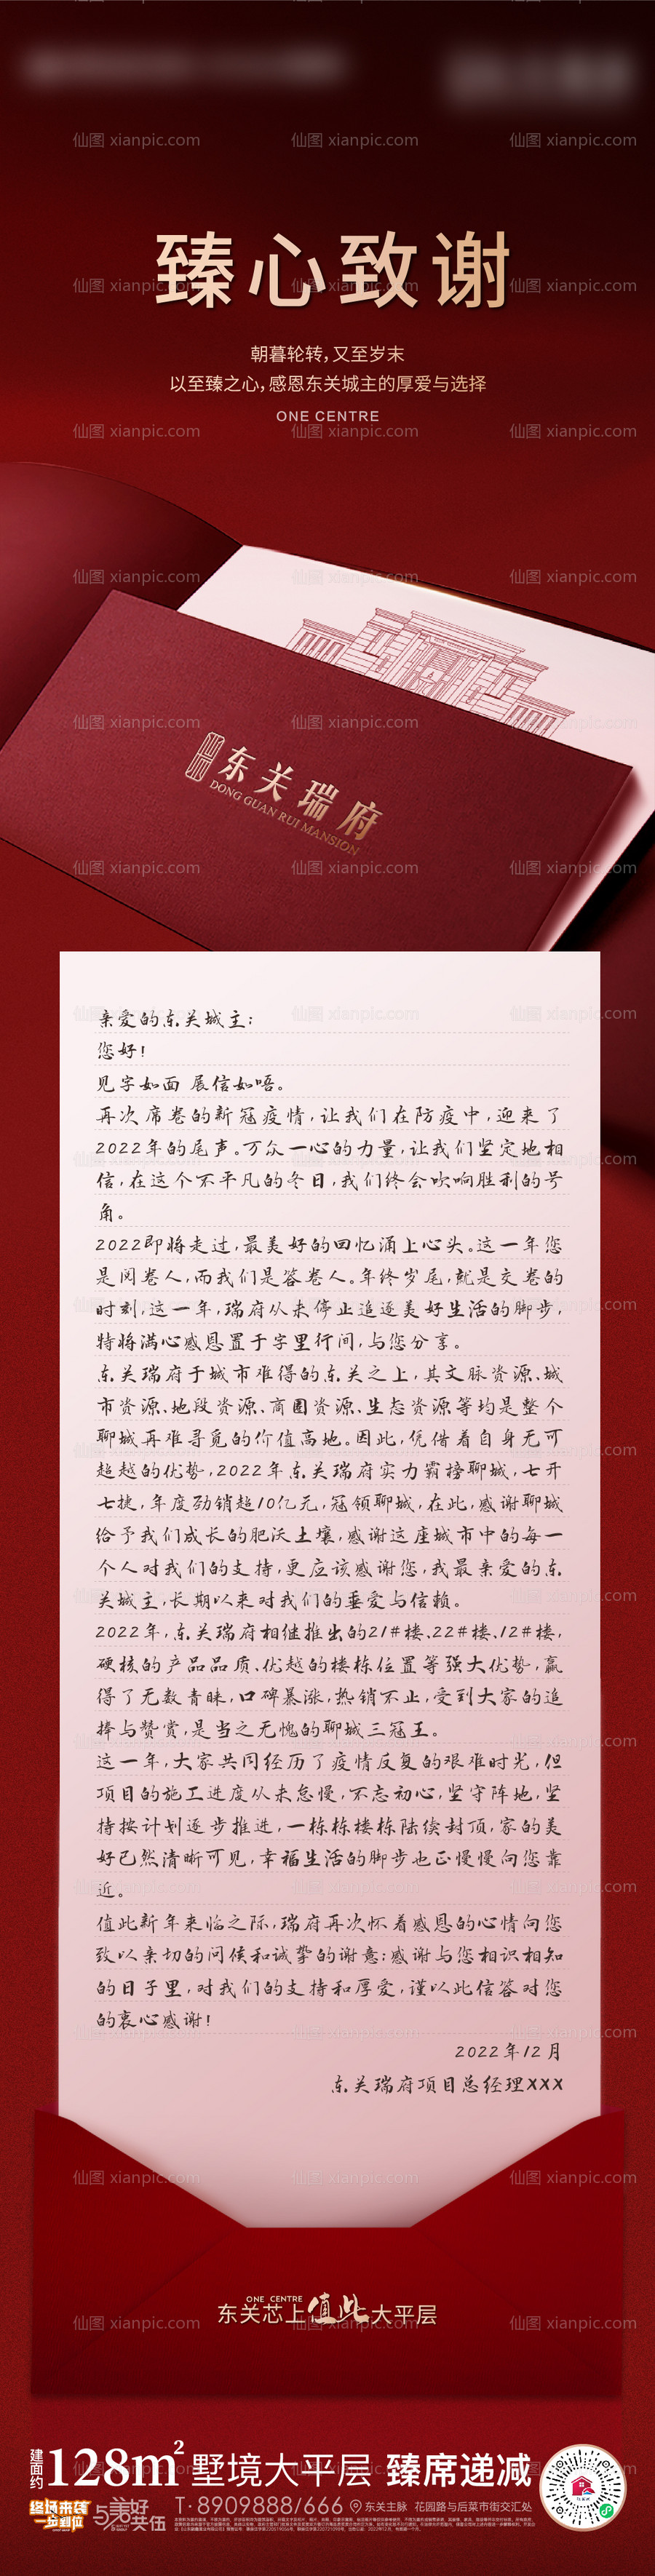 臻心致谢
朝暮轮转,又至岁末
以至臻之心,感恩东关城主的厚爱与选择
ONE CENTRE
东关瑞府
DONG GUAN RUI MANSION
亲爱的东关城主:
您好!
见字如面 展信如唔。
再次席卷的新冠疫情,让我们在防疫中,迎来了
2022年的尾声。万众一心的力量,让我们坚定地相
信,在这个不平凡的冬日,我们终会吹响胜利的号
角。
2022即将走过,最美好的回忆涌上心头。这一年您
是阅卷人,而我们是答卷人。年终岁尾,就是交卷的
时刻,这一年,瑞府从未停止追逐美好生活的脚步,
特将满心感恩置于字里行间,与您分享。
东关瑞府于城市难得的东关之上,其文脉资源、城
市资源、地段资源、商圈资源、生态资源等均是整个
聊城再难寻觅的价值高地。因此,凭借着自身无可
超越的优势,2022年东关瑞府实力霸榜聊城,七开
七捷,年度劲销超10亿元,冠领聊城,在此,感谢聊城
给予我们成长的肥沃土壤,感谢这座城市中的每一
个人对我们的支持,更应该感谢您,我最亲爱的东
关城主,长期以来对我们的垂爱与信赖。
2022年,东关瑞府相继推出的21#楼、22#楼、12#楼,
硬核的产品品质、优越的楼栋位置等强大优势,赢
得了无数青睐,口碑暴涨,热销不止,受到大家的追
捧与赞赏,是当之无愧的聊城三冠王。
这一年,大家共同经历了疫情反复的艰难时光,但
项目的施工进度从未怠慢,不忘初心,坚守阵地,坚
持按计划逐步推进,一栋栋楼栋陆续封顶,家的美
好已然清晰可见,幸福生活的脚步也正慢慢向您靠
近。
值此新年来临之际,瑞府再次怀着感恩的心情向您
致以亲切的问候和诚挚的谢意:感谢与您相识相知
的日子里,对我们的支持和厚爱,谨以此信答对您
的衷心感谢!
2022年12月
东关瑞府项目总经理XXX
ONE CENTRE
东关芯上值此大平层
建面约128m²墅境大平层 臻席递减
终域来袭
一步到位
T·8909888/666
东关主脉 花园路与后菜市街交汇处
仙图 xianpic.com